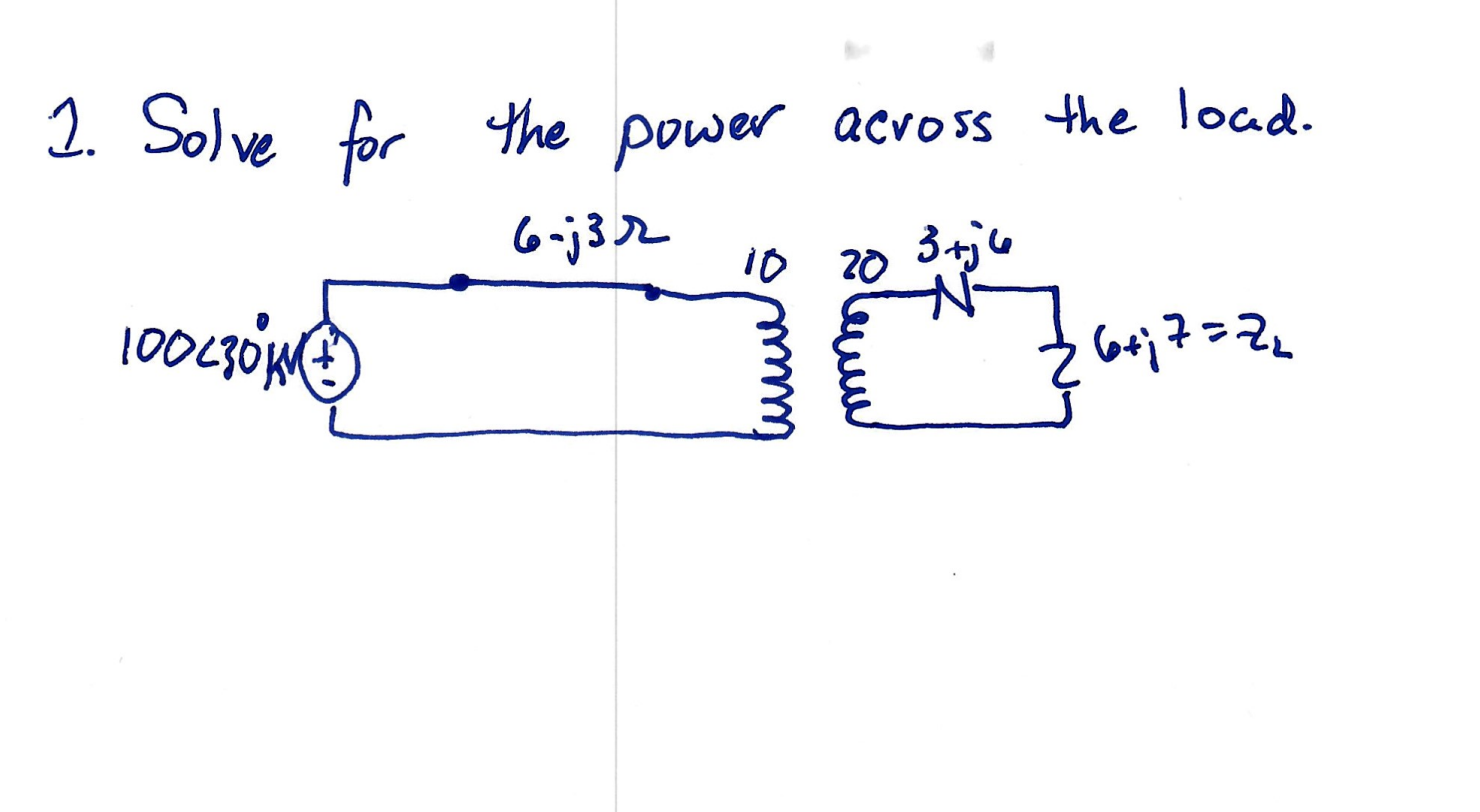 1. Solve for the power across the load.
6-j3Ω
10 20 3+j6
100<30° kV + - 6+j7 = ZL